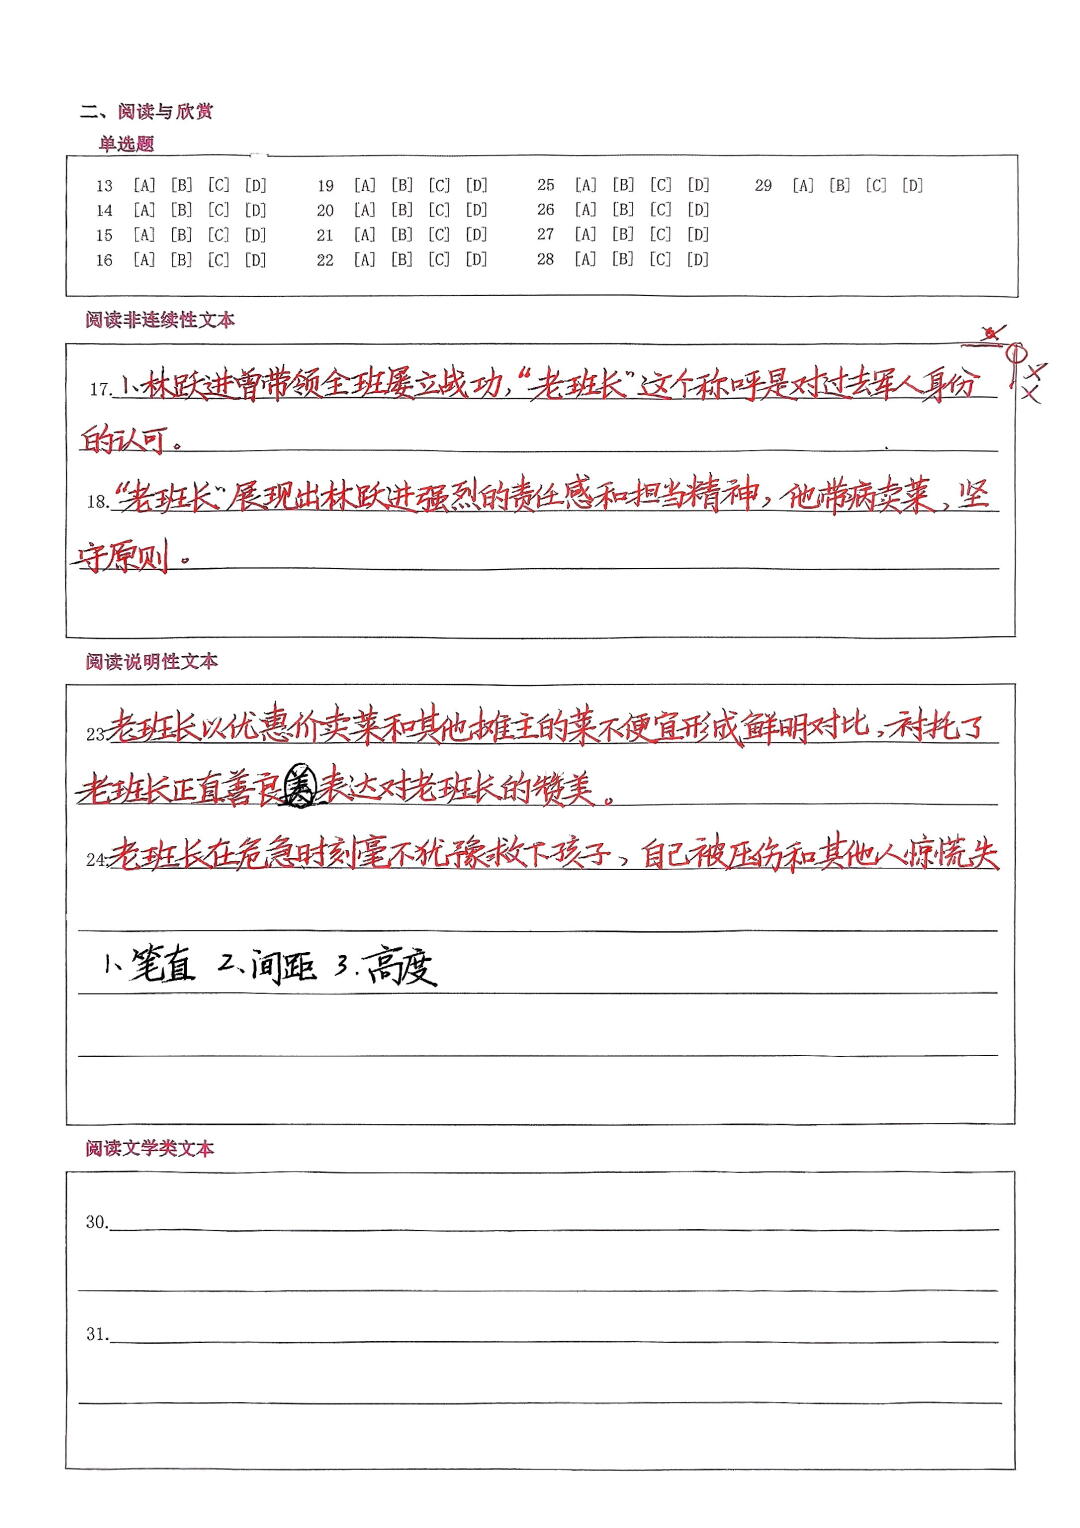 二、阅读与欣赏
单选题
13 [A] [B] [C] [D] 19 [A] [B] [C] [D] 25 [A] [B] [C] [D] 29 [A] [B] [C] [D]
14 [A] [B] [C] [D] 20 [A] [B] [C] [D] 26 [A] [B] [C] [D]
15 [A] [B] [C] [D] 21 [A] [B] [C] [D] 27 [A] [B] [C] [D]
16 [A] [B] [C] [D] 22 [A] [B] [C] [D] 28 [A] [B] [C] [D]
阅读非连续性文本
17. 1、林跃进曾带领全班屡立战功，“老班长”这个称呼是对过去军人身份
的认可。
18. “老班长”展现出林跃进强烈的责任感和担当精神，他带病卖菜、坚
守原则。
阅读说明性文本
23. 老班长以优惠价卖菜和其他摊主的菜不便宜形成鲜明对比，衬托了
老班长正直善良 表达对老班长的赞美。
24. 老班长在危急时刻毫不犹豫救下孩子，自己被压伤和其他人惊慌失
1、笔直 2、间距 3.高度
阅读文学类文本
30.
31.